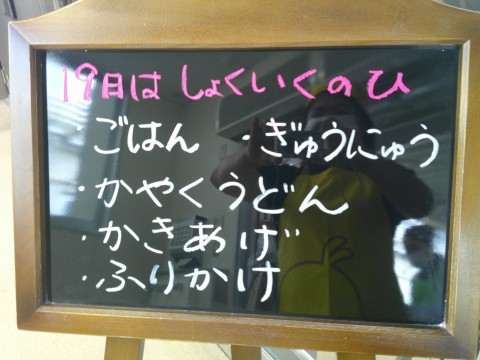 19日は しょくいくのひ
・ごはん ・ぎゅうにゅう
・かやくうどん
・かきあげ
・ふりかけ